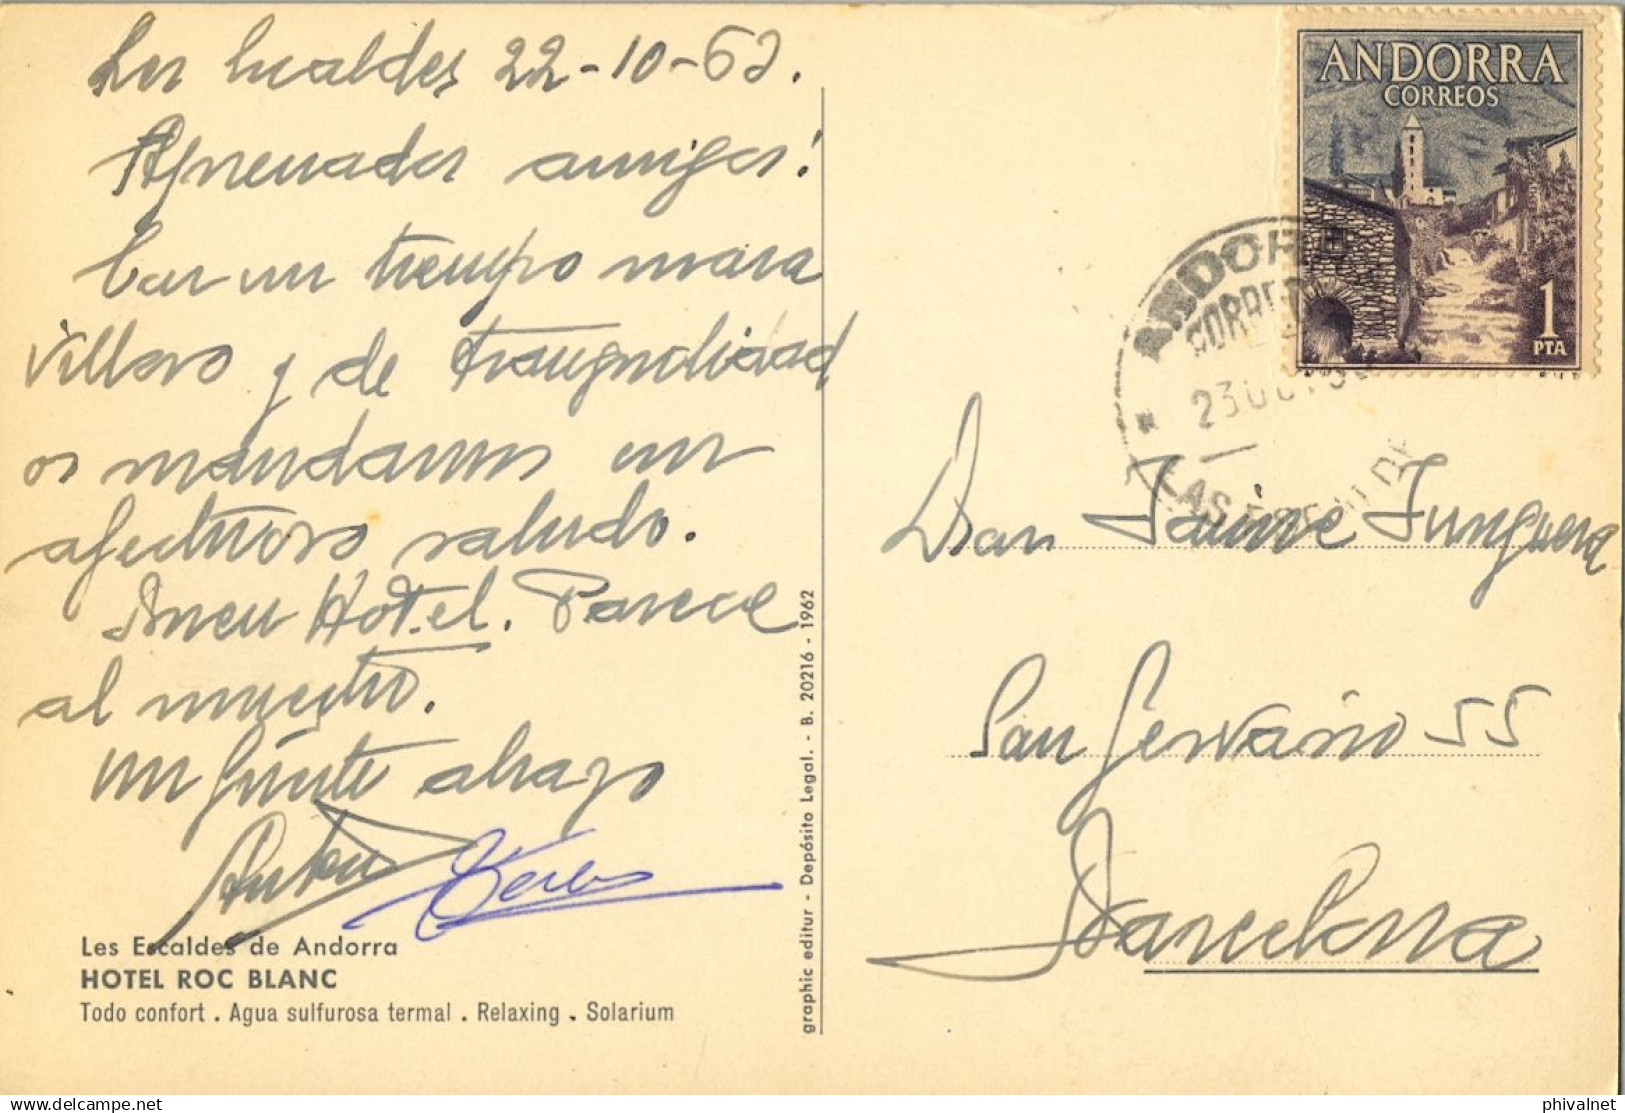 Les Escaldes 22-10-63.
Apreciados amigos!
Con un tiempo mara
villoso y de tranquilidad
os mandamos un
afectuoso saludo.
Hotel. Parece
al nuestro.
un fuerte abrazo
Les Escaldes de Andorra
HOTEL ROC BLANC
Todo confort . Agua sulfurosa termal . Relaxing . Solarium
graphic editur - Depósito Legal. - B. 20216 - 1962
ANDORRA
CORREOS
1
PTA
ANDORRA
CORREOS
23 OCT 63
LAS ESCALDES
Don Jaime Junquera
San Gervasio 55
Barcelona
phivalnet